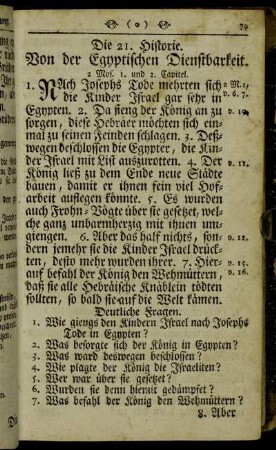 ( o ) 79
Die 21. Historie.
Von der Egyptischen Dienstbarkeit.
2 Mos. 1. und 2. Capitel.
1. NAch Josephs Tode mehrten sich 2 M. 1,
die Kinder Israel gar sehr in v. 6. 7.
Egypten. 2. Da fieng der König an zu
sorgen, diese Hebräer möchten sich ein- v. 10.
mal zu seinen Feinden schlagen. 3. Deß-
wegen beschlossen die Egypter, die Kin-
der Israel mit List auszurotten. 4. Der v. 11.
König ließ zu dem Ende neue Städte
bauen, damit er ihnen fein viel Hof-
arbeit auflegen könnte. 5. Es wurden
auch Frohn-Vögte über sie gesetzet, wel-
che ganz unbarmherzig mit ihnen um-
giengen. 6. Aber das half nichts, son- v. 12.
dern jemehr sie die Kinder Israel drück-
ten, desto mehr wurden ihrer. 7. Hier- v. 15.
auf befahl der König den Wehmüttern, v. 16.
daß sie alle Hebräische Knäblein tödten
sollten, so bald sie auf die Welt kämen.
Deutliche Fragen.
1. Wie giengs den Kindern Israel nach Josephs
Tode in Egypten?
2. Was besorgte sich der König in Egypten?
3. Was ward deswegen beschlossen?
4. Wie plagte der König die Israeliten?
5. Wer war über sie gesetzet?
6. Wurden sie denn hiemit gedämpfet?
7. Was befahl der König den Wehmüttern?
8. Aber